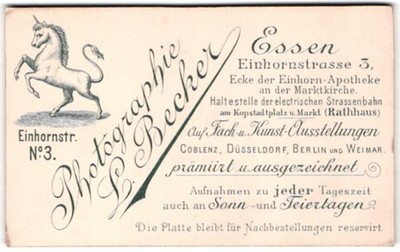 Einhornstr.
No. 3.
Photographie
L. Becker
Essen
Einhornstrasse 3,
Ecke der Einhorn-Apotheke
an der Marktkirche.
Haltestelle der electrischen Strassenbahn
am Kopstadtplatz u. Markt (Rathhaus)
Auf Fach- u. Kunst-Ausstellungen
COBLENZ, DÜSSELDORF, BERLIN UND WEIMAR.
prämiirt u. ausgezeichnet
Aufnahmen zu jeder Tageszeit
auch an Sonn- und Feiertagen
Die Platte bleibt für Nachbestellungen reservirt.